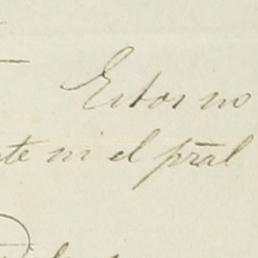 Estos no
te ni el pral